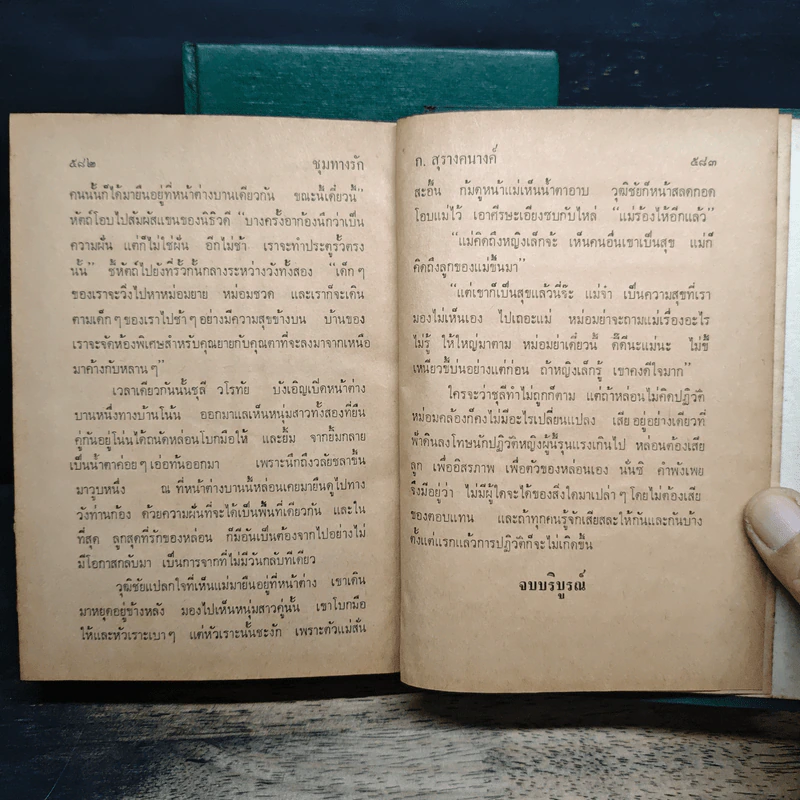 ๕๘๒ ชุมทางรัก
คนนั้นก็ได้มายืนอยู่ที่หน้าต่างบานเดียวกัน ขณะนี้เดี๋ยวนี้”
หัตถ์โอบไปสัมผัสแขนของนิธิวดี “บางครั้งอาก้องนึกว่าเป็น
ความฝัน แต่ก็ไม่ใช่ฝัน อีกไม่ช้า เราจะทำประตูรั้วตรง
นั้น” ชี้หัตถ์ไปยังที่รั้วกั้นกลางระหว่างวังทั้งสอง “เด็กๆ
ของเราจะวิ่งไปหาหม่อมยาย หม่อมชวด และเราก็จะเดิน
ตามเด็กๆของเราไปช้าๆอย่างมีความสุขข้างบน บ้านของ
เราจะจัดห้องพิเศษสำหรับคุณยายกับคุณตาที่จะลงมาจากเหนือ
มาค้างกับหลานๆ”
เวลาเดียวกันนั้นชุลี วโรทัย บังเอิญเปิดหน้าต่าง
บานหนึ่งทางบ้านโน้น ออกมาแลเห็นหนุ่มสาวทั้งสองที่ยืน
คู่กันอยู่โน่นได้ถนัดหล่อนโบกมือให้ และยิ้ม จากยิ้มกลาย
เป็นน้ำตาค่อยๆเอ่อท้นออกมา เพราะนึกถึงวลัยชลาขึ้น
มาวูบหนึ่ง ณ ที่หน้าต่างบานนี้หล่อนเคยมายืนดูไปทาง
วังท่านก้อง ด้วยความฝันที่จะได้เป็นพื้นที่เดียวกัน และใน
ที่สุด ลูกสุดที่รักของหล่อน ก็มีอันเป็นต้องจากไปอย่างไม่
มีโอกาสกลับมา เป็นการจากที่ไม่มีวันกลับทีเดียว
วุฒิชัยแปลกใจที่เห็นแม่มายืนอยู่ที่หน้าต่าง เขาเดิน
มาหยุดอยู่ข้างหลัง มองไปเห็นหนุ่มสาวคู่นั้น เขาโบกมือ
ให้และหัวเราะเบาๆ แต่หัวเราะนั้นชะงัก เพราะตัวแม่สั่น
ก. สุรางคนางค์ ๕๘๓
สะอื้น ก้มดูหน้าแม่เห็นน้ำตาอาบ วุฒิชัยก็หน้าสลดกอด
โอบแม่ไว้ เอาศีรษะเอียงซบกับไหล่ “แม่ร้องไห้อีกแล้ว”
“แม่คิดถึงหญิงเล็กจ้ะ เห็นคนอื่นเขาเป็นสุข แม่ก็
คิดถึงลูกของแม่ขึ้นมา”
“แต่เขาก็เป็นสุขแล้วนี่จ๊ะ แม่จ๋า เป็นความสุขที่เรา
มองไม่เห็นเอง ไปเถอะแม่ หม่อมย่าจะถามแม่เรื่องอะไร
ไม่รู้ ให้ใหญ่มาตาม หม่อมย่าเดี๋ยวนี้ ดี๊ดีนะแม่นะ ไม่ขี้
เหนียวขี้บ่นอย่างแต่ก่อน ถ้าหญิงเล็กรู้ เขาคงดีใจมาก”
ใครจะว่าชุลีทำไม่ถูกก็ตาม แต่ถ้าหล่อนไม่คิดปฏิวัติ
หม่อมคล้องก็คงไม่มีอะไรเปลี่ยนแปลง เสียอยู่อย่างเดียวที่
ฟ้าดินลงโทษนักปฏิวัติหญิงผู้นี้รุนแรงเกินไป หล่อนต้องเสีย
ลูก เพื่ออิสรภาพ เพื่อตัวของหล่อนเอง นั่นซิ คำพังเพย
จึงมีอยู่ว่า ไม่มีผู้ใดจะได้ของสิ่งใดมาเปล่าๆโดยไม่ต้องเสีย
ของตอบแทน และถ้าทุกคนรู้จักเสียสละให้กันและกันบ้าง
ตั้งแต่แรกแล้วการปฏิวัติก็จะไม่เกิดขึ้น
จบบริบูรณ์